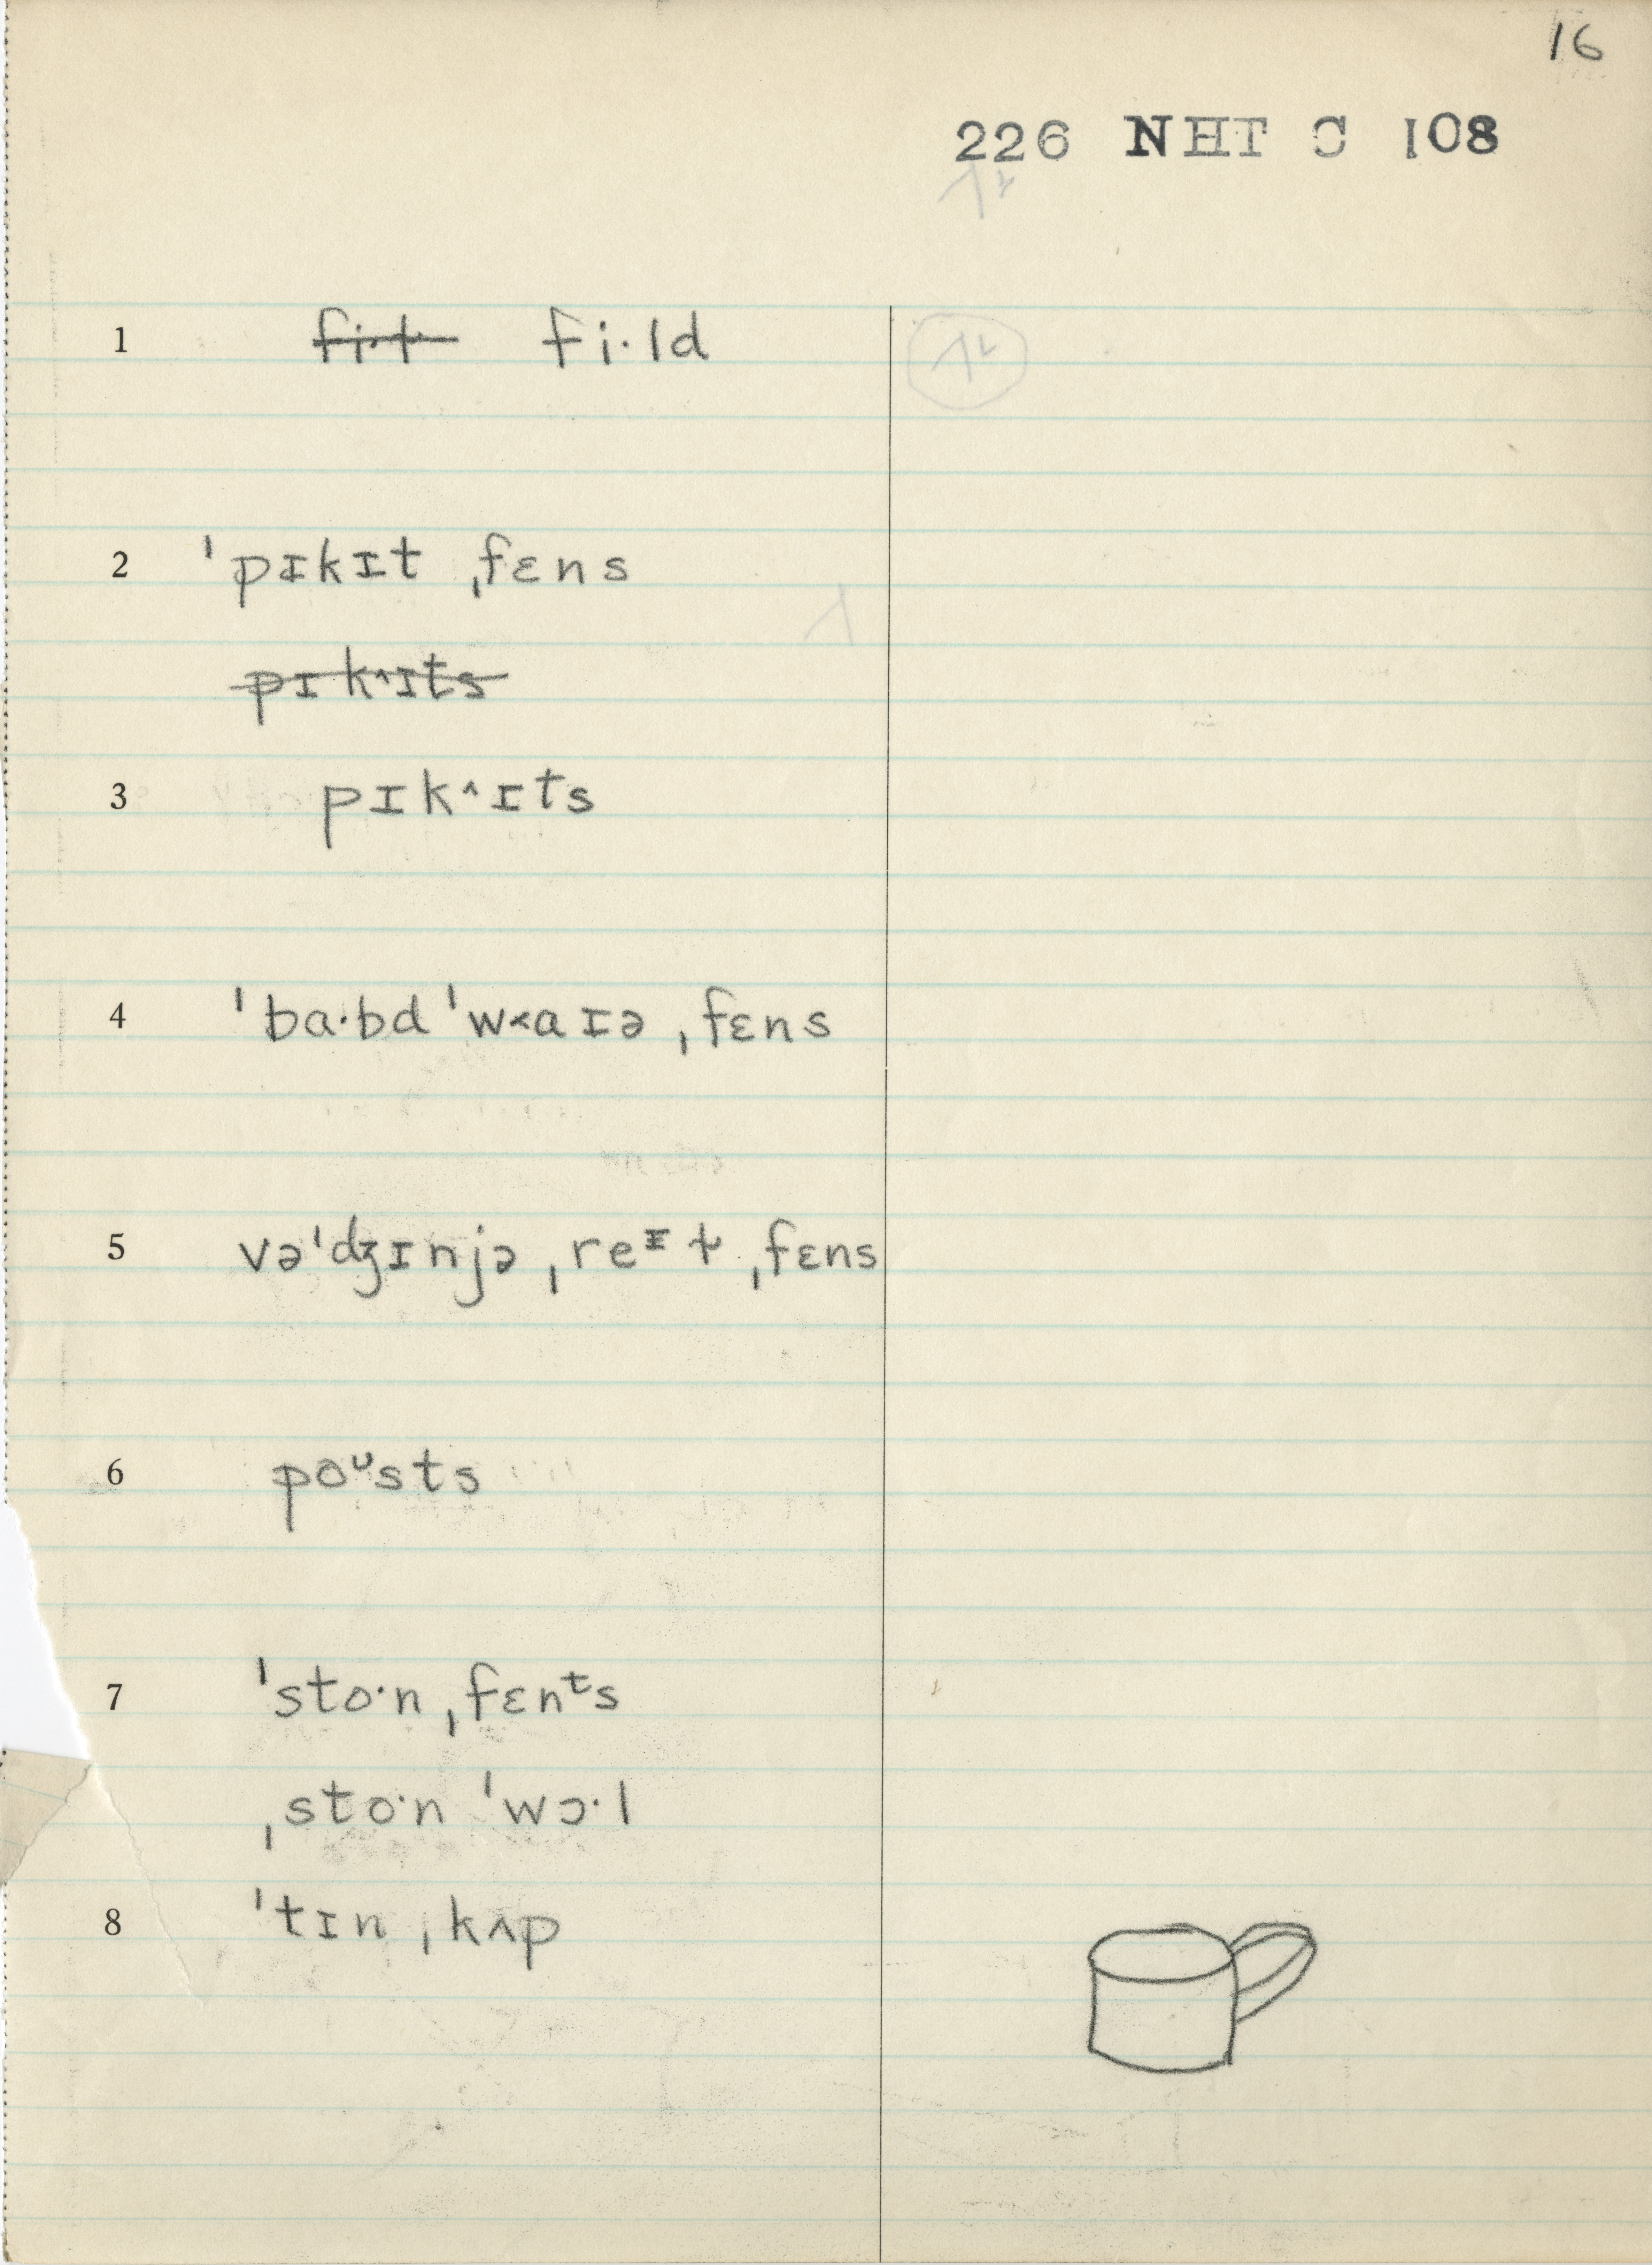 16
226 NHT C 108
1 fi·ld
2 ˈpɪkɪt ˌfɛns
pɪk^ɪts
3 pɪk^ɪts
4 ˈba·bd ˈw˂aɪə ˌfɛns
5 vəˈʤɪnjə ˌre ˌfɛns
6 poᶷsts
7 ˈsto·n ˌfɛnᵗs
ˌsto·n ˈwɔ·l
8 ˈtɪn ˌkʌp